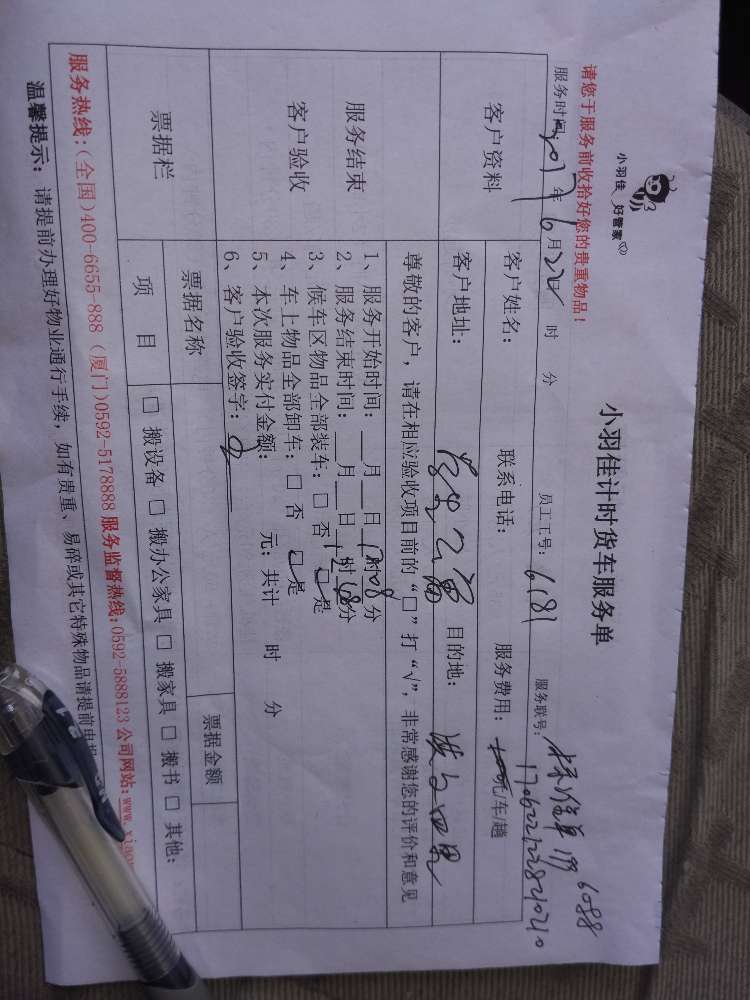 小羽佳 好管家
小羽佳计时货车服务单
请您于服务前收拾好您的贵重物品！
服务时间：2017年6月22 时 分 员工工号：6181 服务联号：标准单199 6088
1706221228210210
客户资料
客户姓名： 联系电话： 服务费用： 元/车趟
客户地址： 目的地：
服务结束
客户验收
尊敬的客户，请在相应验收项目前的“□”打“√”，非常感谢您的评价和意见
1、服务开始时间：__月__日 时08分
2、服务结束时间：__月__日 时 分
3、候车区物品全部装车：□ 否 □ 是
4、车上物品全部卸车：□ 否 □ 是
5、本次服务实付金额： 元：共计 时 分
6、客户验收签字：
票据栏
票据名称 票据金额
项 目 □ 搬设备 □ 搬办公家具 □ 搬家具 □ 搬书 □ 其他：
服务热线：(全国)400-6655-888 (厦门)0592-5178888 服务监督热线：0592-5888123 公司网站：www.xiao
温馨提示： 请提前办理好物业通行手续，如有贵重、易碎或其它特殊物品请提前申报